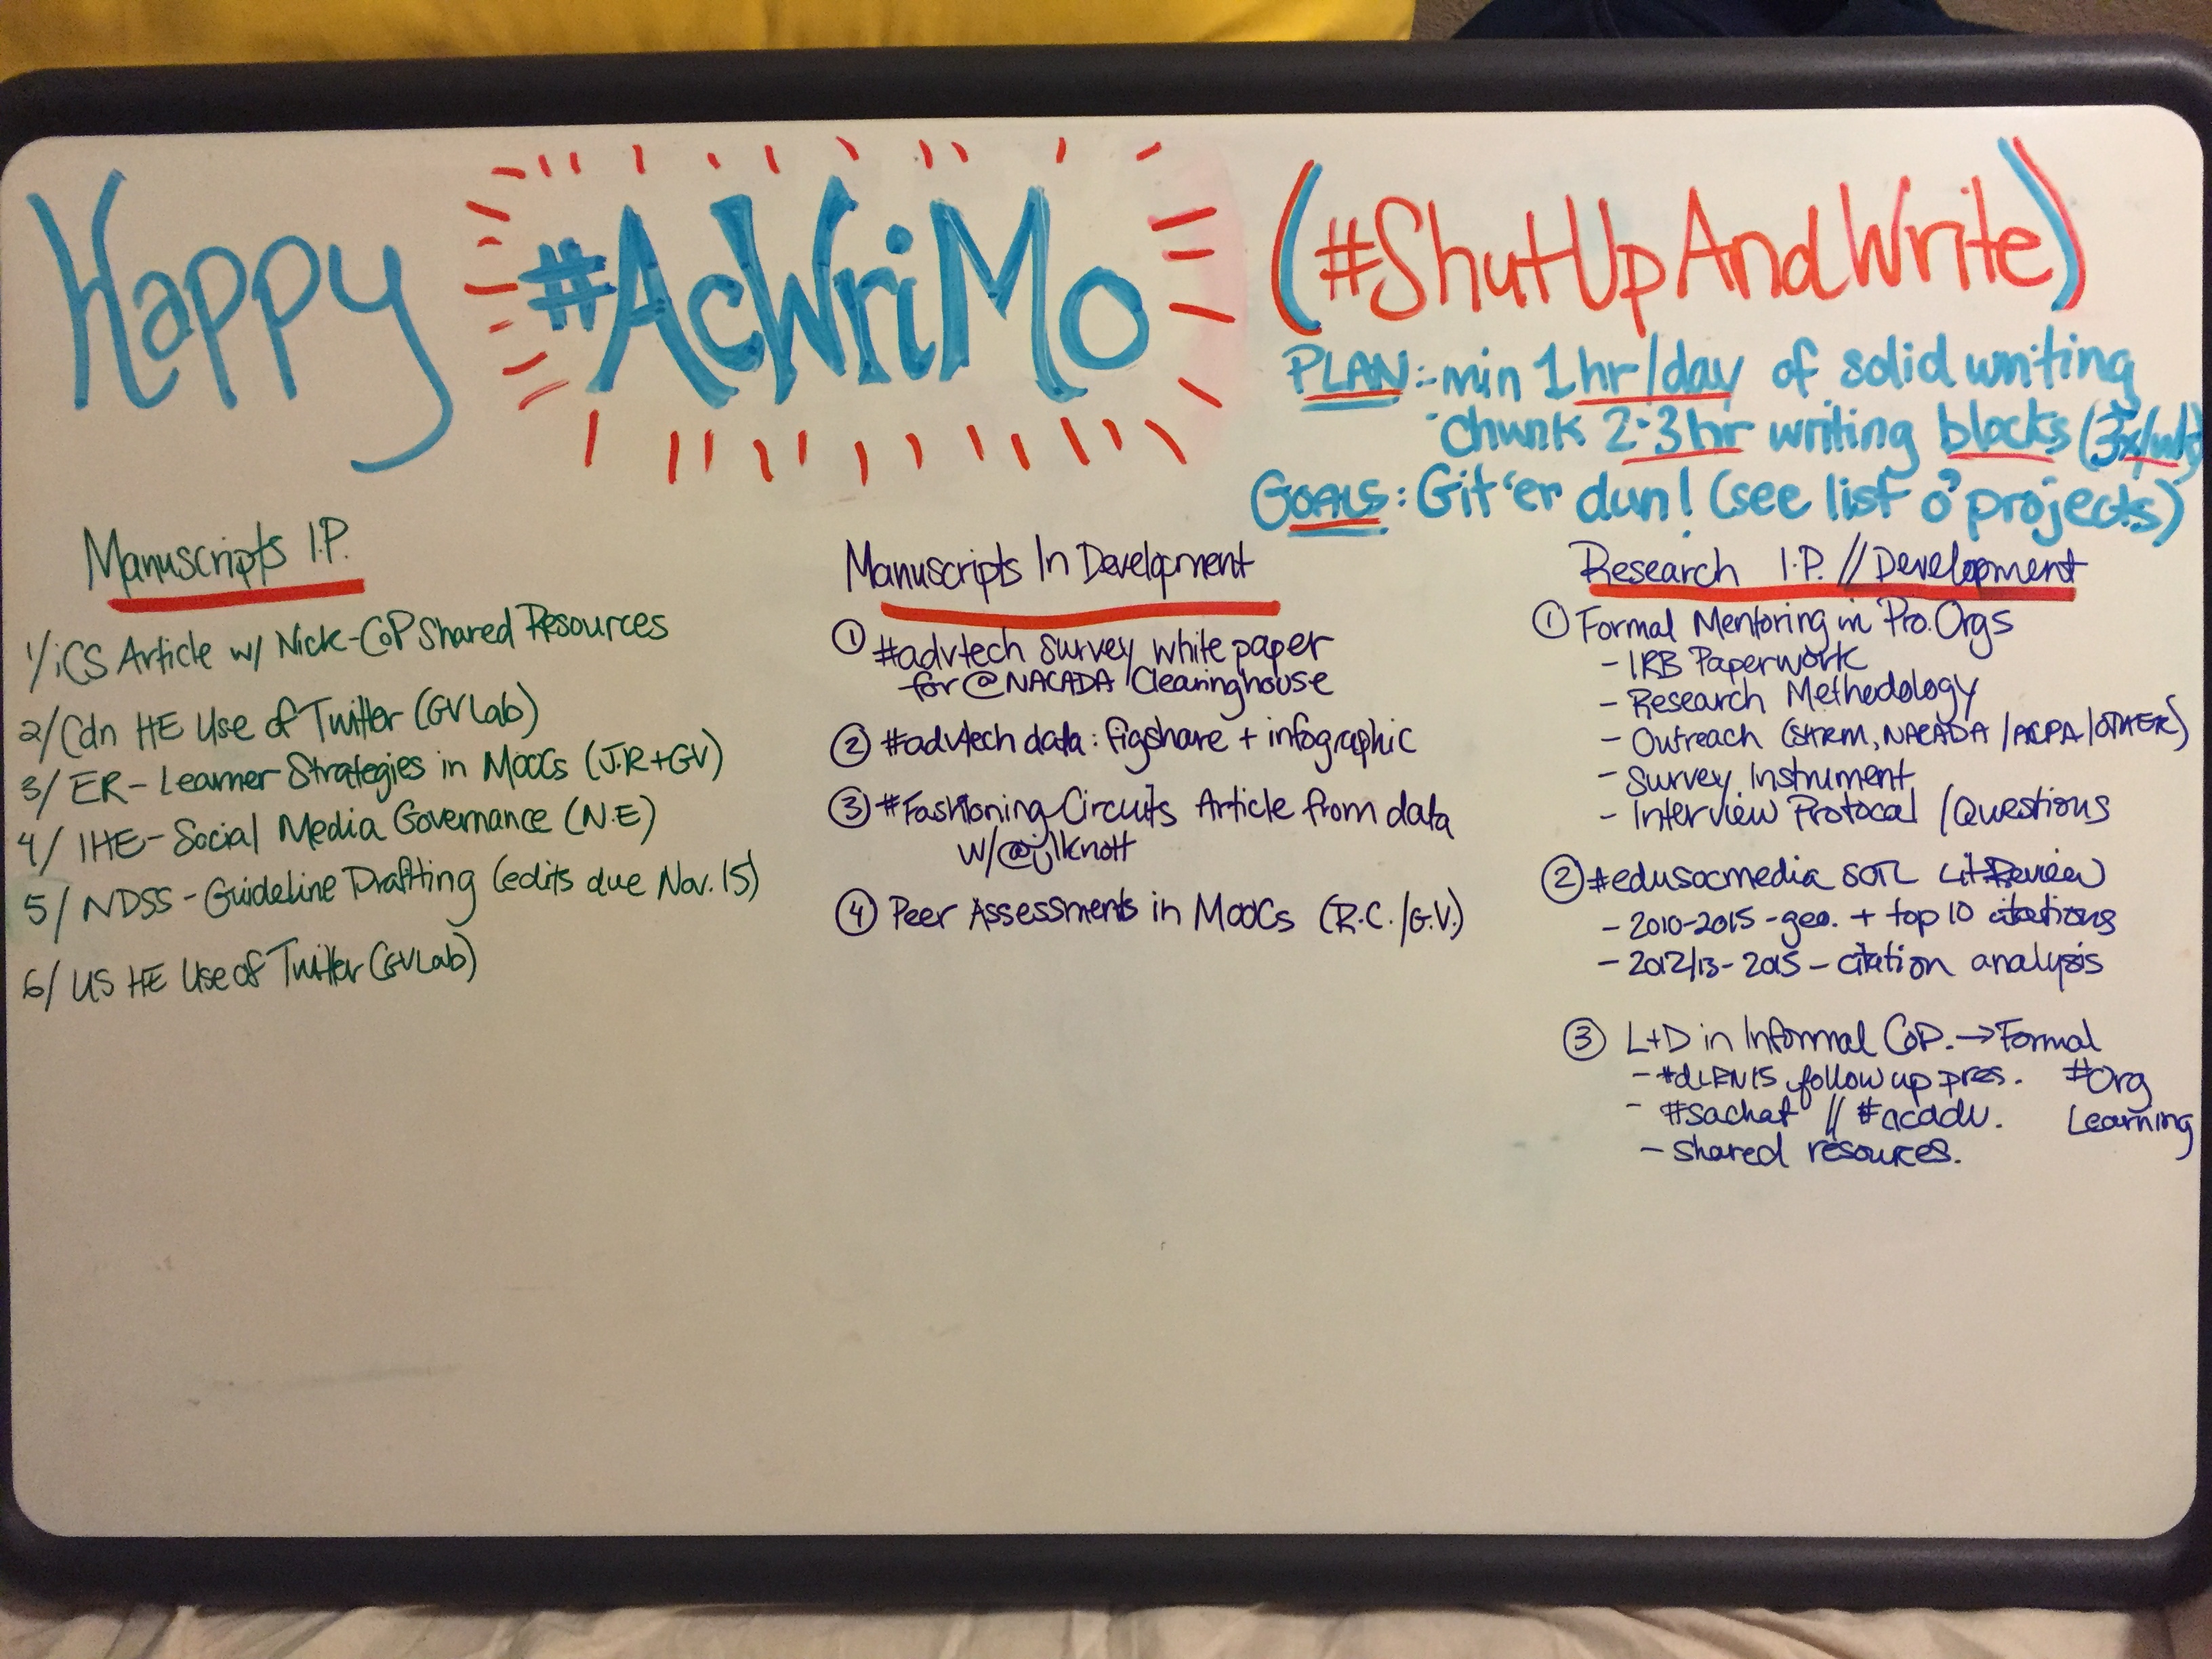 Happy #AcWriMo (#ShutUpAndWrite)
PLAN:-min 1hr/day of solid writing
-chunk 2-3hr writing blocks (3x/wk)
GOALS: Git 'er dun! (see list o' projects)
Manuscripts I.P.
1/ iCS Article w/ Nick-CoP Shared Resources
2/ Cdn HE Use of Twitter (GVLab)
3/ ER- Learner Strategies in MOOCs (J.R+GV)
4/ IHE- Social Media Governance (N.E)
5/ NDSS - Guideline Drafting (edits due Nov. 15)
6/ US HE Use of Twitter (GVLab)
Manuscripts In Development
① #advtech survey white paper
for @NACADA Clearinghouse
② #advtech data: figshare + infographic
③ #FashioningCircuits Article from data
w/@jlknott
④ Peer Assessments in MOOCs (R.C./G.V.)
Research I.P. // Development
① Formal Mentoring in Pro. Orgs
- IRB Paperwork
- Research Methodology
- Outreach (SHRM, NACADA /ACPA/OTHER)
- Survey Instrument
- Interview Protocal /Questions
② #edusocmedia SOTL Lit Review
- 2010-2015 - geo. + top 10 citations
- 2012/13- 2015 - citation analysis
③ L+D in Informal CoP. → Formal
- #dLRN15 follow up pres. #Org
- #sachat // #acadv. Learning
- shared resources.